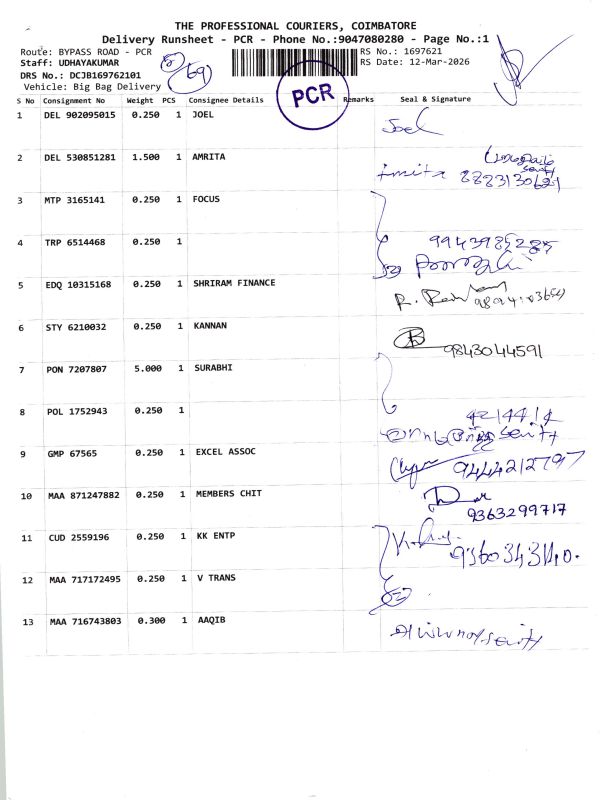 THE PROFESSIONAL COURIERS, COIMBATORE
Delivery Runsheet - PCR - Phone No.:9047080280 - Page No.:1
Route: BYPASS ROAD - PCR
RS No.: 1697621
Staff: UDHAYAKUMAR
RS Date: 12-Mar-2026
DRS No.: DCJB169762101
Vehicle: Big Bag Delivery
69
PCR
S No Consignment No Weight PCS Consignee Details Remarks Seal & Signature
1 DEL 902095015 0.250 1 JOEL Joel
2 DEL 530851281 1.500 1 AMRITA
3 MTP 3165141 0.250 1 FOCUS
4 TRP 6514468 0.250 1
5 EDQ 10315168 0.250 1 SHRIRAM FINANCE
6 STY 6210032 0.250 1 KANNAN 9843044591
7 PON 7207807 5.000 1 SURABHI
8 POL 1752943 0.250 1
9 GMP 67565 0.250 1 EXCEL ASSOC 9444212797
10 MAA 871247882 0.250 1 MEMBERS CHIT 9363299717
11 CUD 2559196 0.250 1 KK ENTP
12 MAA 717172495 0.250 1 V TRANS
13 MAA 716743803 0.300 1 AAQIB